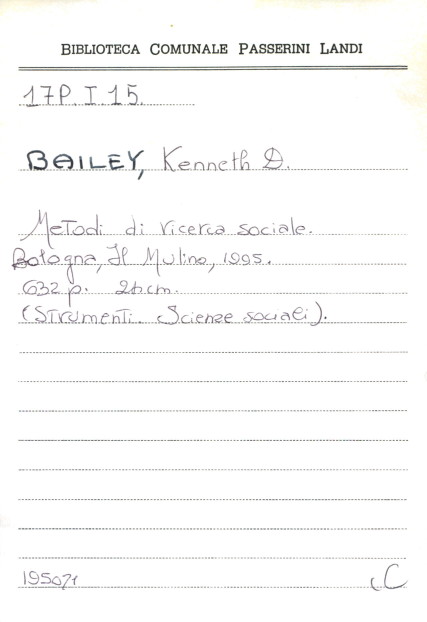 BIBLIOTECA COMUNALE PASSERINI LANDI
17P. I. 15.
BAILEY, Kenneth D.
Metodi di ricerca sociale.
Bologna, Il Mulino, 1995.
632 p. cm.
(Strumenti. Scienze sociali).
C